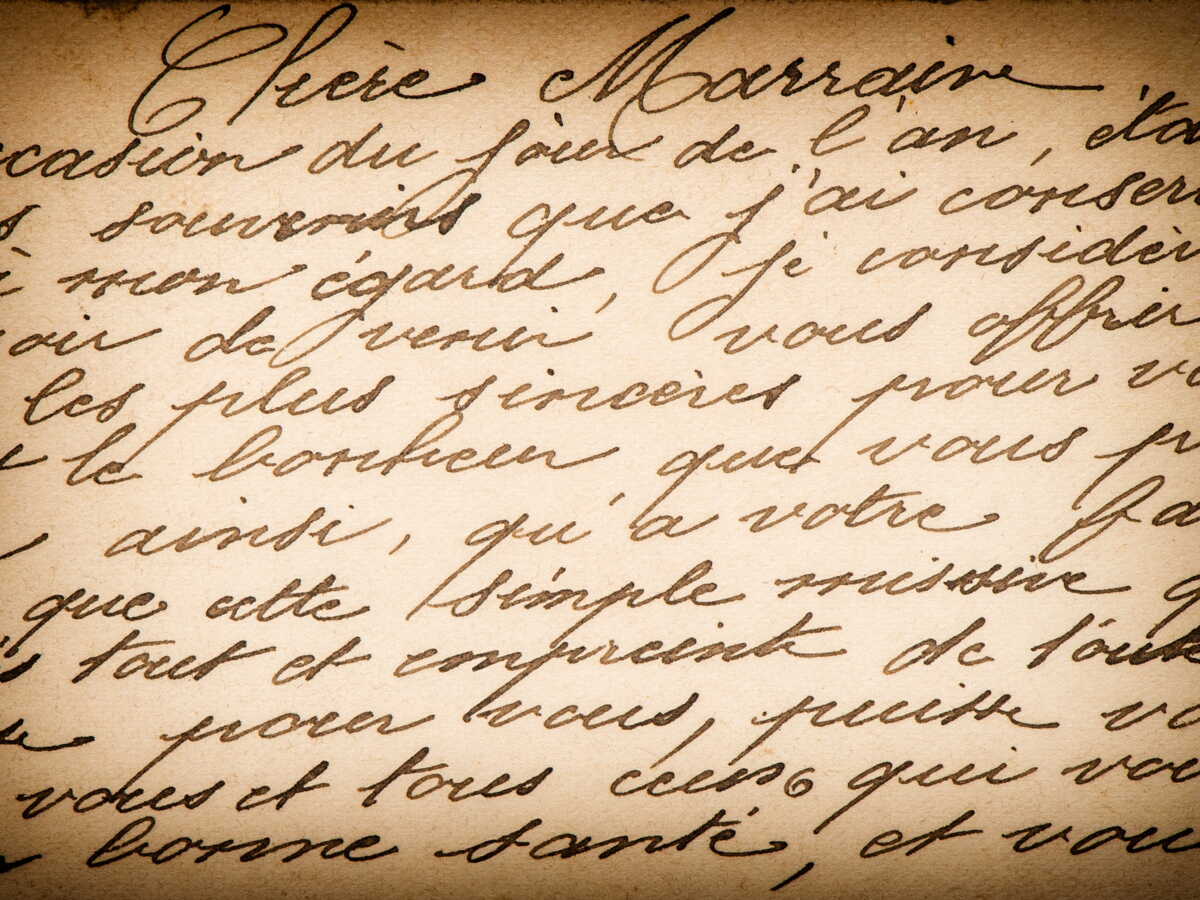 Chère Marraine
ccasion du jour de l'an, éta
s souvenirs que j'ai conser
à mon égard, je considèr
oir de venir vous offrir
les plus sincères pour vo
t le bonheur que vous pr
ainsi, qu'a votre fa
que cette simple missive q
s tout et empreint de toute
pour vous, puisse vo
vous et tous ceux qui vou
bonne santé, et vou